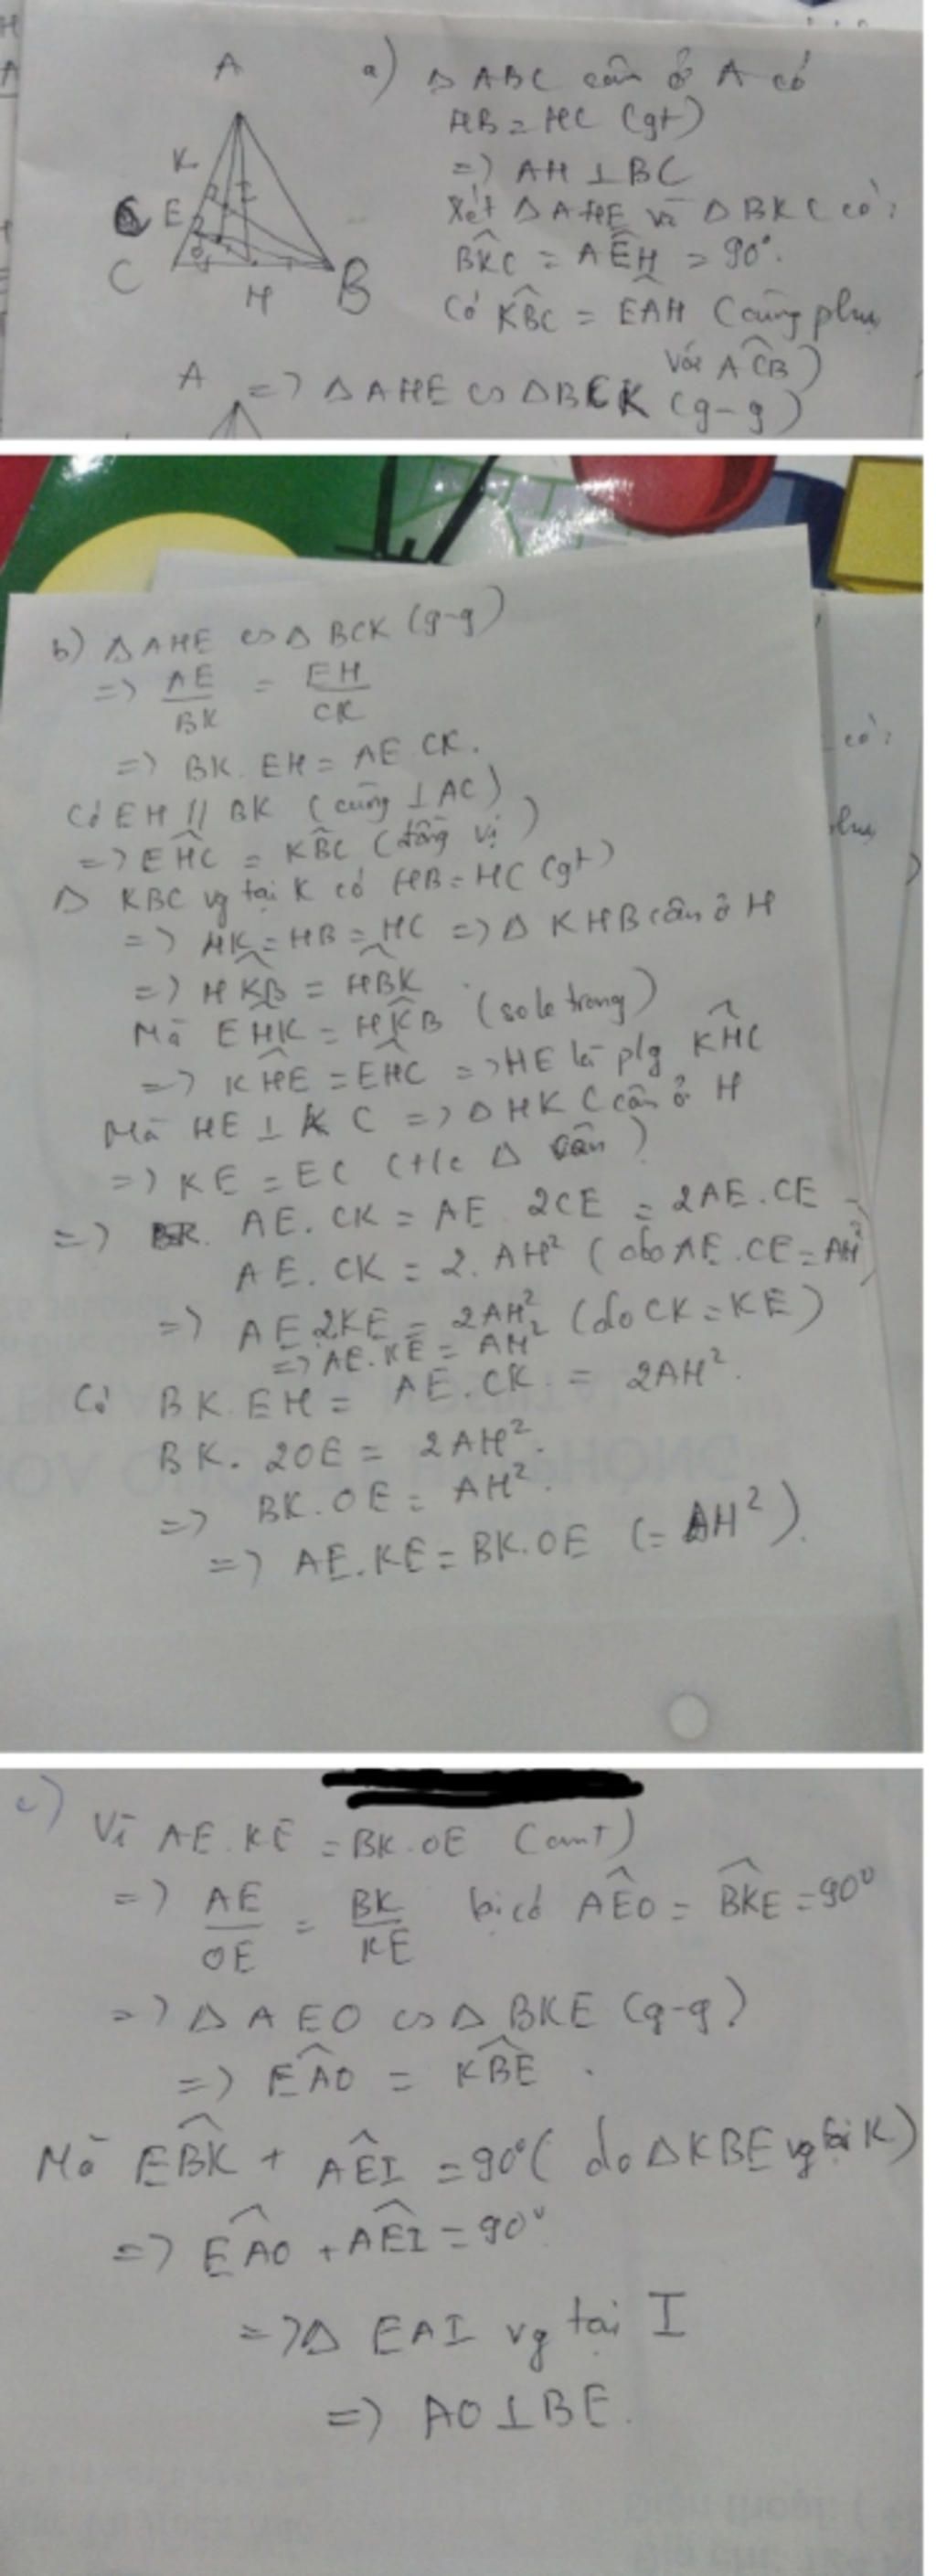 A
K
E
C
H
B
a) Δ ABC cân ở A có
HB = HC (gt)
=> AH ⊥ BC
Xét Δ AHE và Δ BKC có:
BKC = AEH = 90°.
Có KBC = EAH (cùng phụ
với ACB)
A
=> Δ AHE ∽ Δ BCK (g-g)
b) Δ AHE ∽ Δ BCK (g-g)
=> AE/BK = EH/CK
=> BK. EH = AE CK.
Có EH // BK (cùng ⊥ AC)
=> EHC = KBC (đồng vị)
Δ KBC vg tại K có HB = HC (gt)
=> HK = HB = HC => Δ KHB cân ở H
=> HKB = HBK
Mà EHK = HKB (sole trong)
=> KHE = EHC => HE là plg KHC
Mà HE ⊥ KC => Δ HKC cân ở H
=> KE = EC (t/c Δ cân)
=> AE. CK = AE 2CE = 2AE.CE
AE. CK = 2. AH² (do AE.CE = AH²)
=> AE 2KE = 2AH² (do CK = KE)
=> AE.KE = AH²
Có BK.EH = AE.CK = 2AH².
BK. 2OE = 2AH².
=> BK.OE = AH².
=> AE.KE = BK.OE (= AH²).
có:
phụ
)
c)
Vì AE.KE = BK.OE (cmt)
=> AE/OE = BK/KE lại có AEO = BKE = 90°
=> Δ AEO ∽ Δ BKE (g-g)
=> EAO = KBE .
Mà EBK + AEI = 90° (do Δ KBE vg tại K)
=> EAO + AEI = 90°
=> Δ EAI vg tại I
=> AO ⊥ BE.